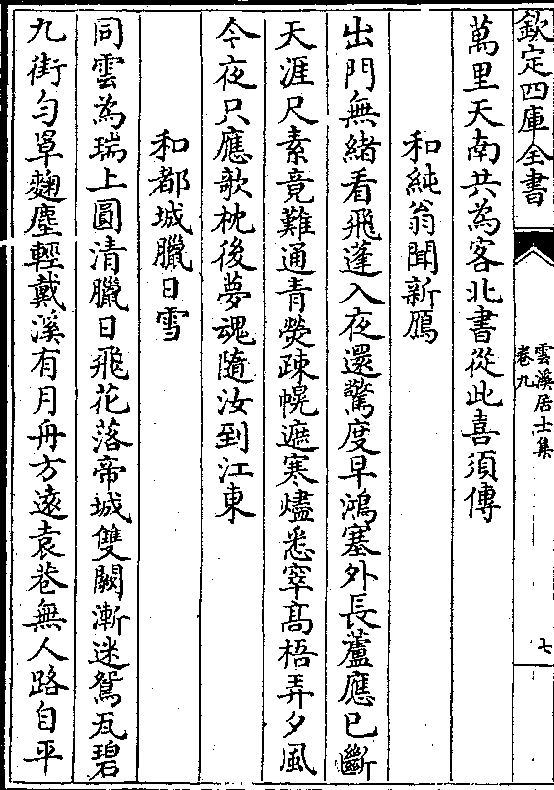 欽定四庫全書
雲溪居士集
卷九
七
萬里天南共為客北書從此喜須傳
和純翁聞新鴈
出門無緒看飛蓬入夜還驚度早鴻塞外長蘆應已斷
天涯尺素竟難通青熒疎幌遮寒燼悉窣高梧弄夕風
今夜只應欹枕後夢魂隨汝到江東
和都城臘日雪
同雲為瑞上圓清臘日飛花落帝城雙闕漸迷鴛瓦碧
九街勻罩麴塵輕戴溪有月舟方遠袁巷無人路自平